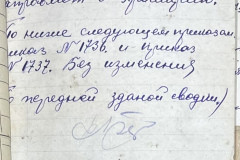 По ниже следующем приказам.
приказ N 1736. и приказ
N 1737. Без изменения
передней зданой сводки.)